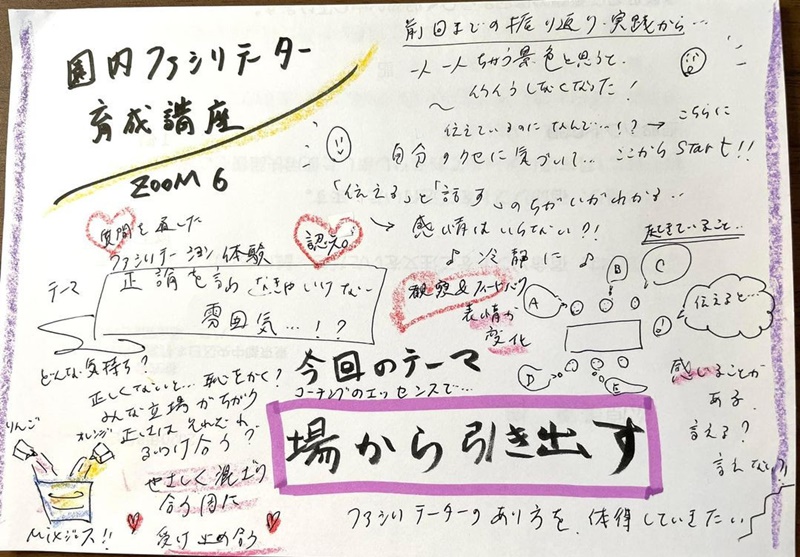 園内ファシリテーター
育成講座
ZOOM 6
前回までの振り返り・実践から…
一人一人ちがう景色と思うと、
イライラしなくなった!
〜
伝えているのになんで…!? → こちらに
自分のクセに気づいて… ここからStart!!
「伝える」と「話す」のちがいがわかる…
→ 感情はいらない?!
♪ 冷静に ♪
質問を通した
ファシリテーション体験
認える。
テーマ
正論を言わなきゃいけない
雰囲気…!?
観察&フィードバック
表情が
変化
起きていること…
A
B
C
D
E
伝えると…
感いることが
ある
言える?
言えない?
どんな気持ち?
正しくないと… 恥をかく?
みんな立場がちがう
正しさはそれぞれ
ぶつけ合う?
やさしく混ざり
合う用に
受け止め合う
りんご
オレンジ
MIXジュース!!
今回のテーマ
コーチングのエッセンスで…
場から引き出す
ファシリテーターのあり方を、体得していきたい